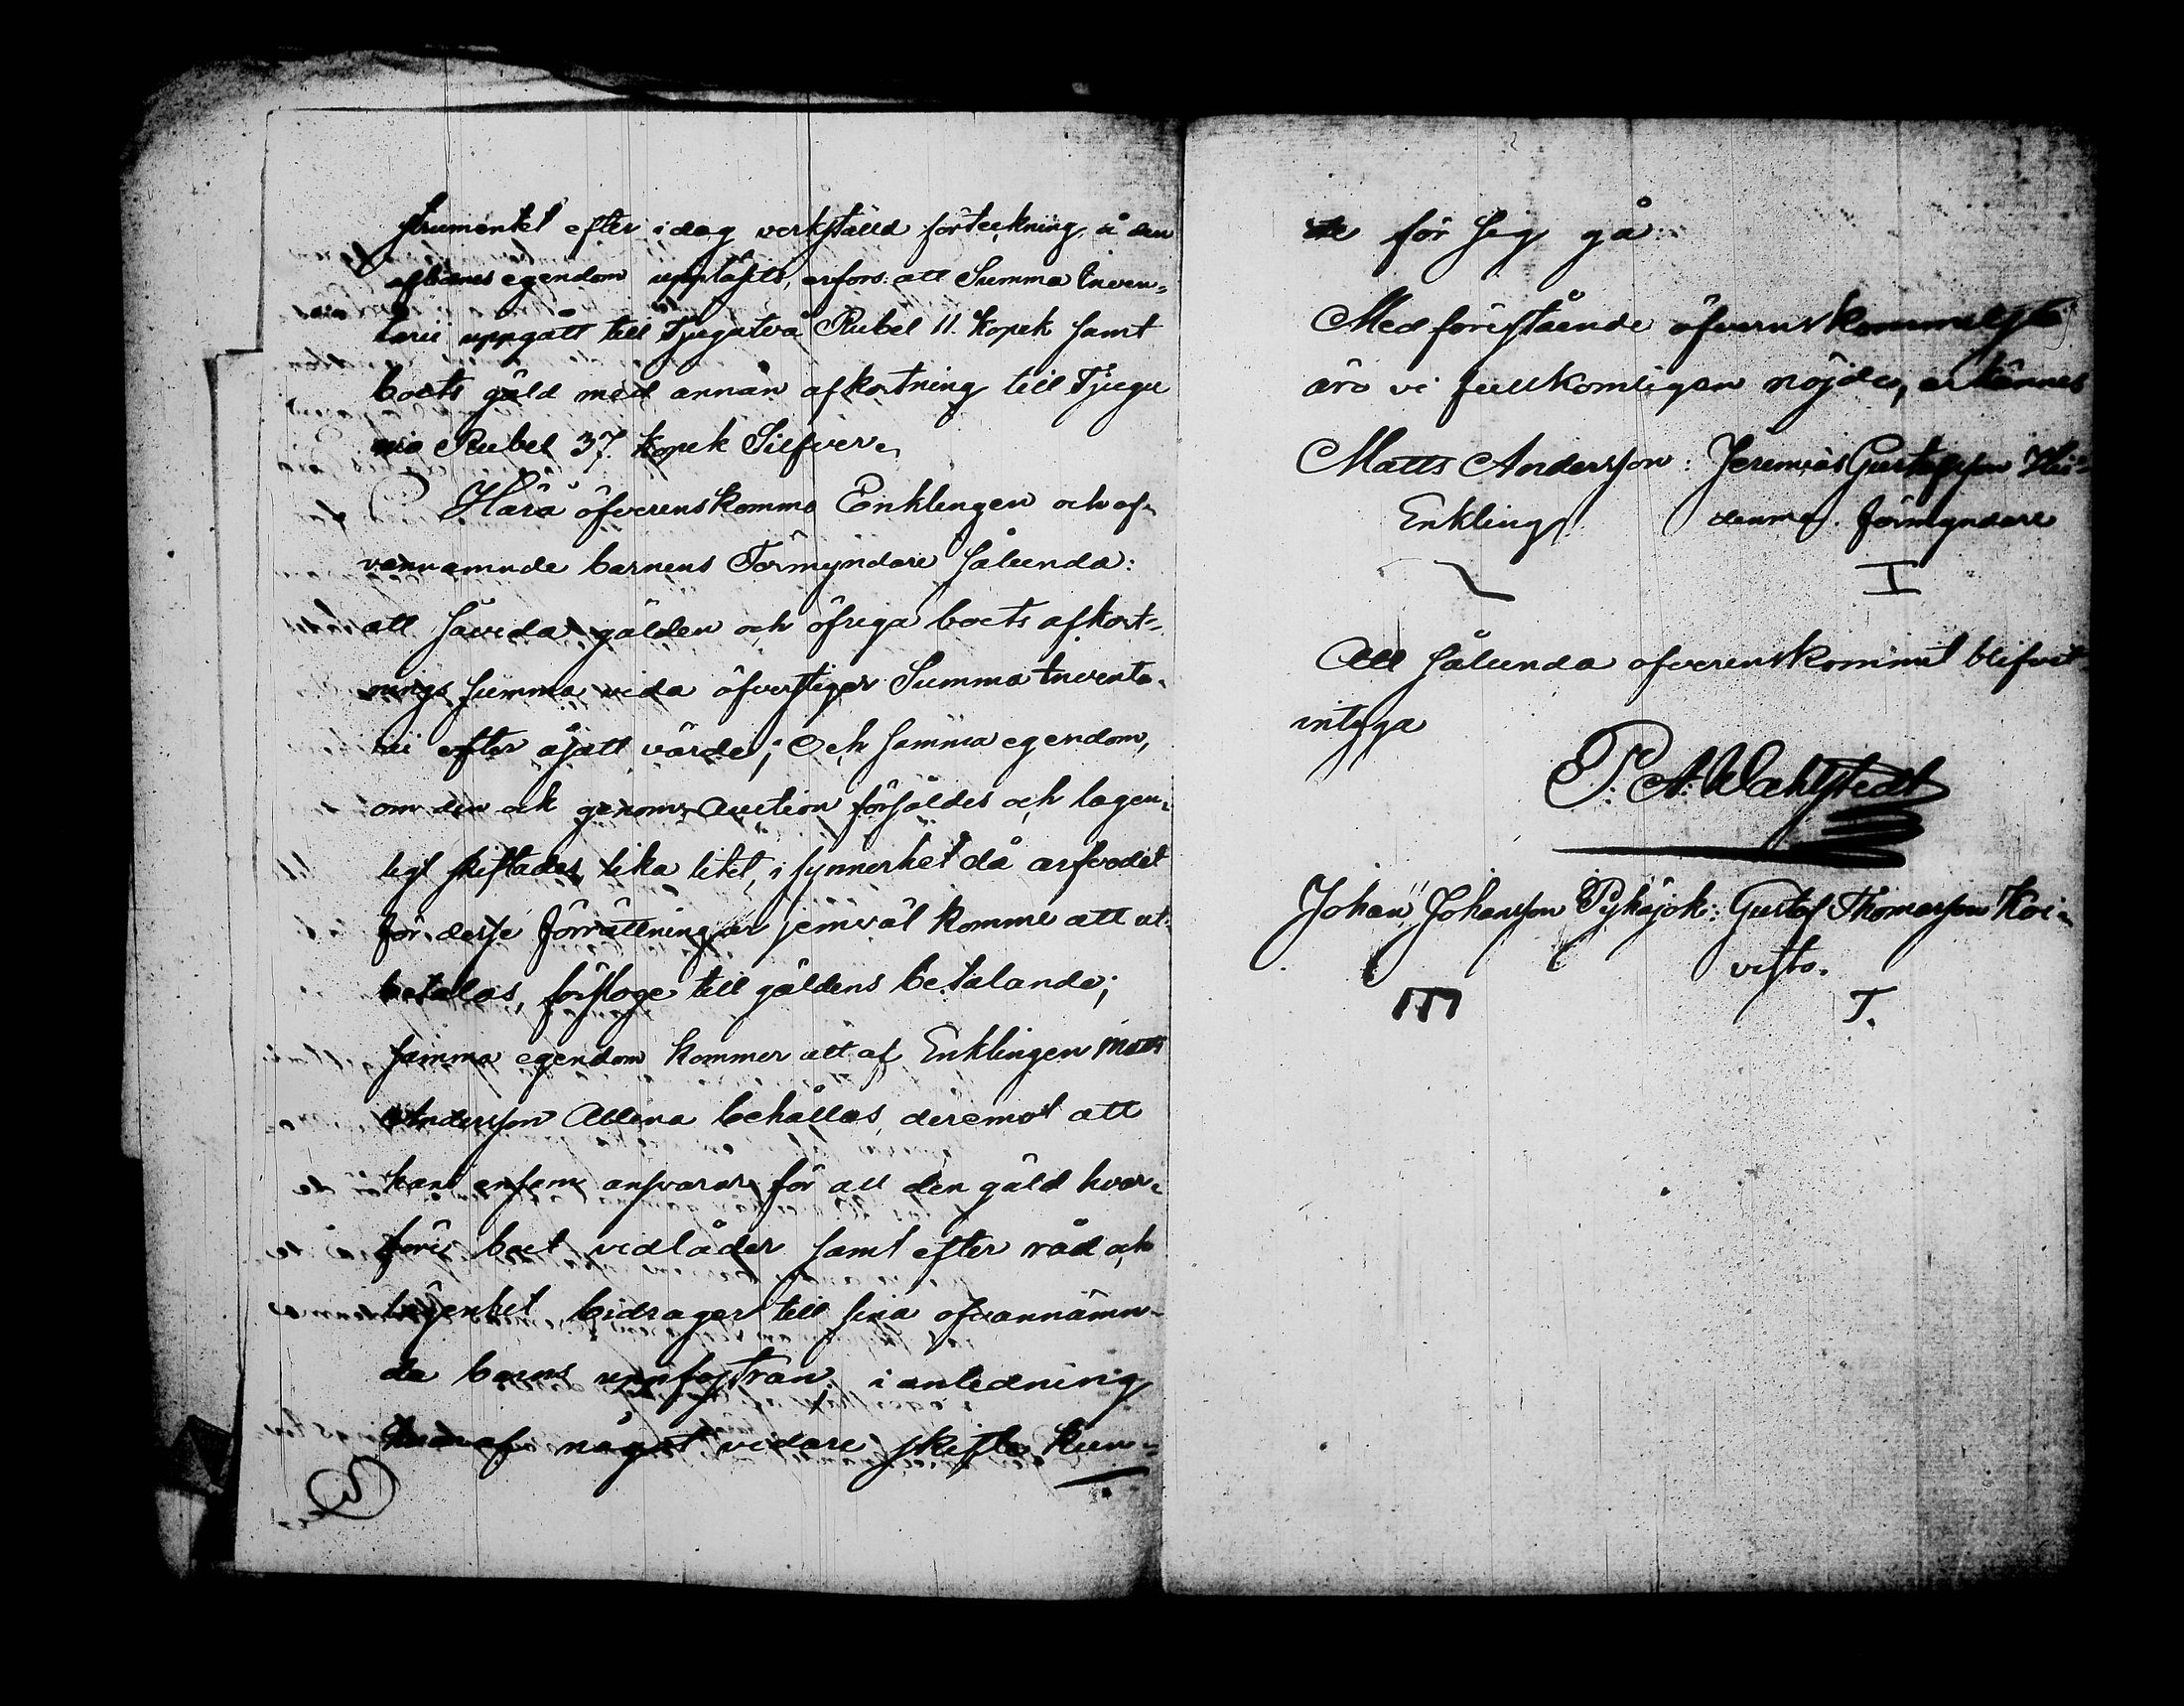 strumentet efter i dag verkställd förteckning å den
aflidnes egendom uppläsits, erfors att Summa Inven-
tarii uppgått till Tjugutvå Rubel 11. Kopek samt
boets gäld med annan afkortning till Tjugu
nio Rubel 37. kopek Silfver.
Härå öfverenskommo Enklingen och of-
vannämnde barnens Förmyndare sålunda:
att såvida gälden och öfriga boets afkort-
nings summa vida öfverstiger Summa Inventa-
rii efter åsatt värde; Och samma egendom,
om den ock genom Auction försåldes och lagen-
ligt skiftades, lika litet, i synnerhet då arfvodet
för desse förrättningar jemväl komme att ut-
betalas, försloge till gäldens betalande;
samma egendom kommer att af Enklingen Matts
Andersson Allena behållas, deremot att
han ensam ansvarar för all den gäld hvar-
före boet vidlåder samt efter råd och
lägenhet bidrager till sina ofvannämn-
da barns uppfostran, i anledning
hvaraf något vidare skifte kun-
de för sig gå.
Med förestående öfverenskommelse
äro vi fullkomligen nöjde, erkännes
Matts Andersson: Jeremias Gustafsson Hei-
Enkling. denma. förmyndare
I
Att sålunda öfverenskommit blifvit
intyga
P. A. Wahlstedt
Johan Johansson Pyhäjok: Gustaf Thomasson Koi-
visto.
T.